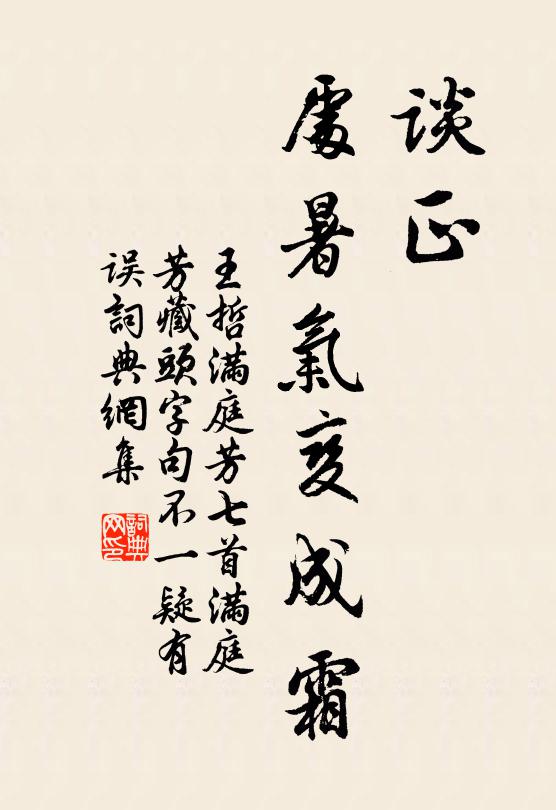 谈正
處暑氣变成霜
王哲满庭芳七首满庭
芳藏頭字句不一疑有
误詞典網集
詞典网印